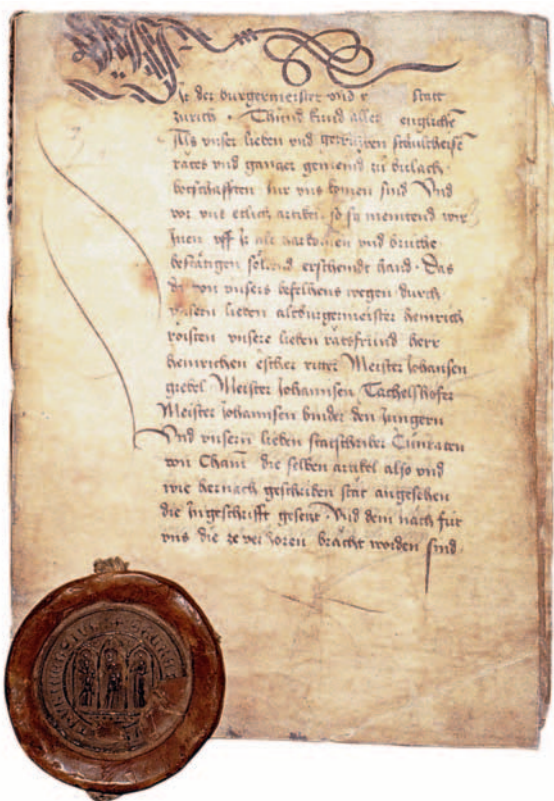 Wir der burgermeister vnd r statt
zurich · Thund kund aller
Als vnser lieben vnd getrüwen schultheisß
rates vnd gantzer gemeind zu bulach
bottschafften für vns komen sind Vnd
vor vns etlich artikel so sy meintend wir
Inen vff Ir alt harkomen vnd brüche
bestätigen söltend erscheindt hand · Das
da von vnsers befelhens wegen durch
vnsern lieben altburgermeister heinrich
röisten vnsere lieben ratsfründ herr
heinrichen escher ritter Meister Johansen
grebel Meister Johannsen Tachelshofer
Meister Johannsen binder den Jungern
Vnd vnsern lieben statschriber Cunraten
von Cham die selben artikel also vnd
wie hernach geschriben stat angesehen
die Ingeschrifft gesetzt · Vnd dem nach für
vns die ze verhören bracht worden sind ·